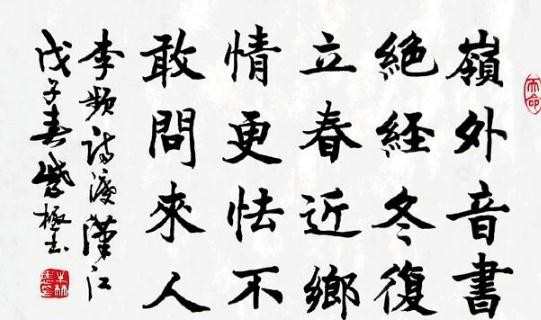 嶺外音書
絶経冬復
立春近鄉
情更怯不
敢問來人
李頻詩渡漢江
戊子春